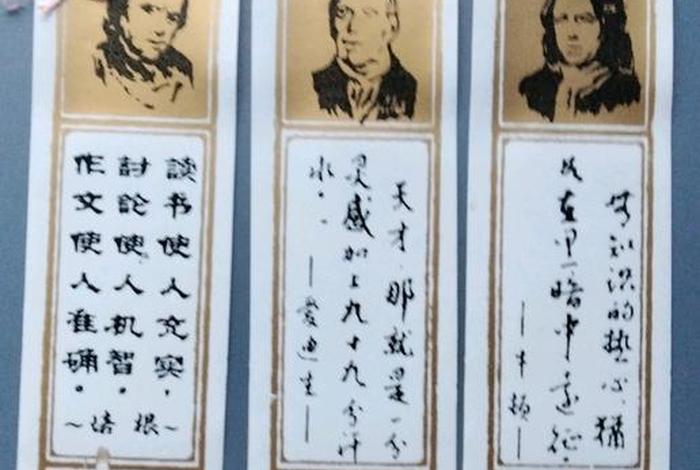 读书使人充实，
討論使人机智。
作文使人准确。
~培根~
天才，那就是一分
灵感加上九十九分汗
水。
—爱迪生—
无知识的热心，犹
如在黑暗中远征。
—牛顿—